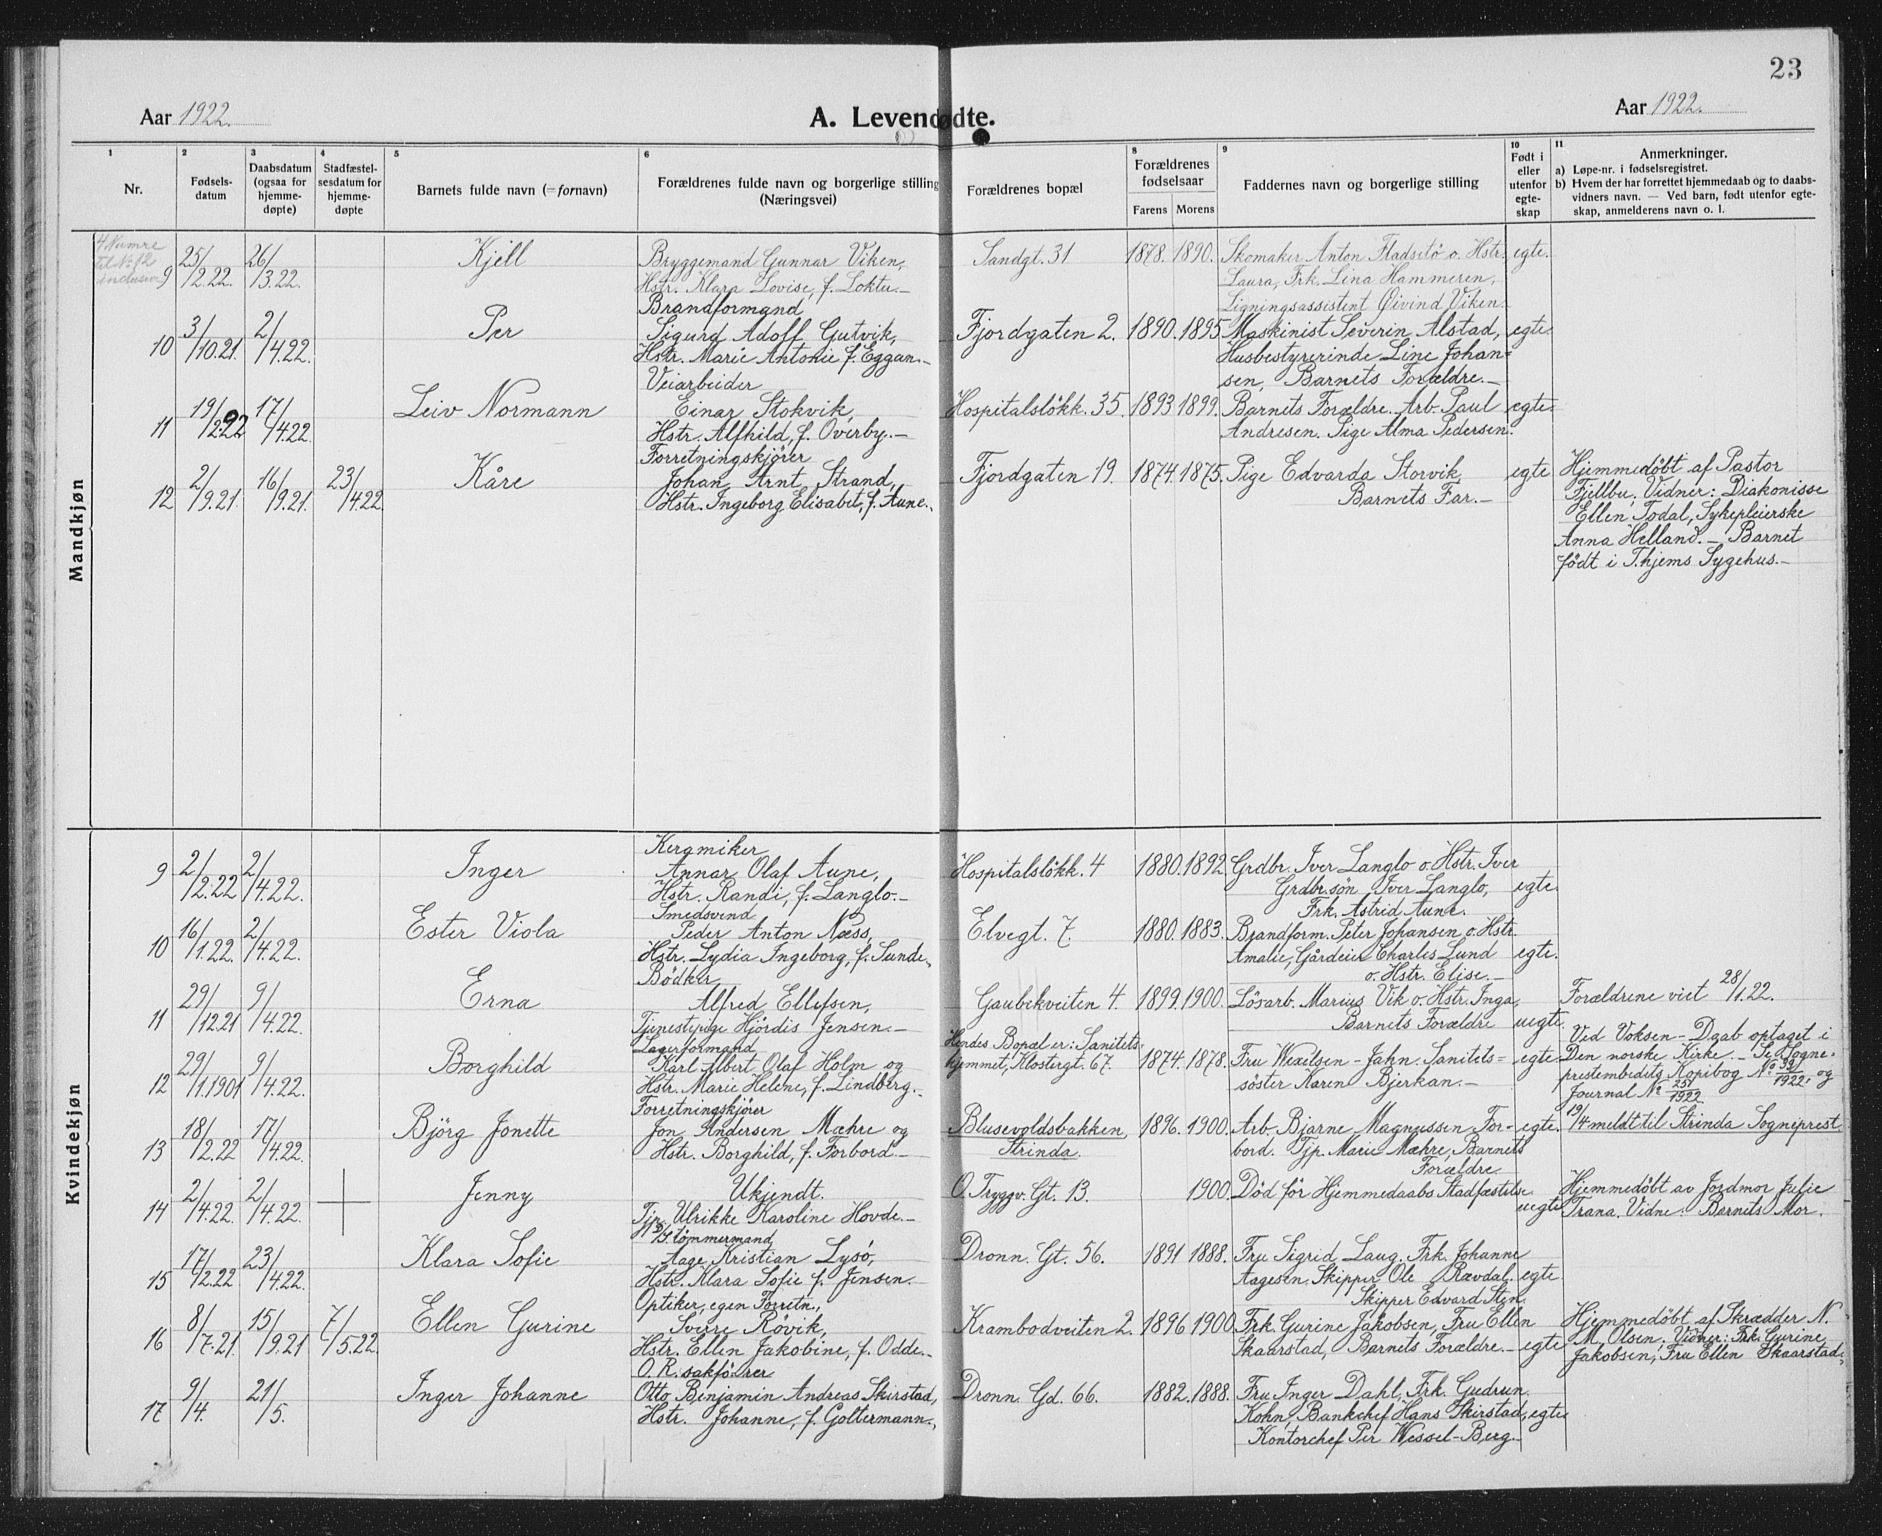 23
Aar 1922.
A. Levendødte.
Aar 1922.
1 Nr.
2 Fødsels-datum
3 Daabsdatum (ogsaa for hjemme-døpte)
4 Stadfæstel-sesdatum for hjemme-døpte
5 Barnets fulde navn (= fornavn)
6 Forældrenes fulde navn og borgerlige stilling (Næringsvei)
Forældrenes bopæl
8 Forældrenes fødselsaar Farens Morens
9 Faddernes navn og borgerlige stilling
10 Født i eller utenfor egte-skap
11 Anmerkninger.
a) Løpe-nr. i fødselsregistret.
b) Hvem der har forrettet hjemmedaab og to daabs-
vidners navn. — Ved barn, født utenfor egte-
skap, anmelderens navn o. l.
Mandkjøn
4 Numre
til No 12
inclusive
9 25/2.22. 26/3.22. Kjell
Bryggemand Gunnar Viken,
Hstr. Klara Lovise, f. Loktu.—
Sandgt. 31 1878. 1890.
Skomaker Anton Fladsetø o. Hstr.
Laura, Frk. Lina Hammeren,
Ligningsassistent Øivind Viken.
egte.
10 3/10.21. 2/4.22. Per
Brandformand
Sigurd Adolf Gutvik,
Hstr. Marie Antonie f. Eggan.—
Fjordgaten 2. 1890. 1895.
Maskinist Severin Alstad,
Husbestyrerinde Line Johan=
sen, Barnets Forældre.—
egte
11 19/2.22 17/4.22. Leiv Normann
Veiarbeider
Einar Stokvik,
Hstr. Alfhild, f. Överby.—
Hospitalsløkk. 35. 1893 1899.
Barnets Forældre. Arb. Paul
Andresen. Pige Alma Pedersen.
egte.
12 2/9.21. 16/9.21. 23/4.22. Kåre
Forretningskjører
Johan Arnt Strand,
Hstr. Ingeborg Elisabet, f. Aune.
Fjordgaten 19. 1874. 1875.
Pige Edvarda Storvik,
Barnets Far.—
egte
Hjemmedøbt af Pastor
Fjellbu. Vidner: Diakonisse
Ellen Todal, Sykepleierske
Anna Helland.— Barnet
født i T.hjems Sygehus.—
Kvindekjøn
9 2/2.22 2/4.22. Inger
Keramiker
Annar Olaf Aune,
Hstr. Randi, f. Langlo.—
Hospitalsløkk. 4 1880. 1892.
Grdbr. Iver Langlo o. Hstr. Iver
Grdbr.søn Iver Langlo,
Frk. Astrid Aune.
egte
10 16/1.22. 2/4.22. Ester Viola
Smedsvend
Peder Anton Næss,
Hstr. Lydia Ingeborg, f. Sunde.
Elvegt. 7. 1880. 1883.
Brandform. Peter Johansen o. Hstr.
Amalie, Gårdeier Charles Lund
o. Hstr. Elise.—
egte.
11 29/12.21 9/4.22. Erna
Bødker
Alfred Ellefsen,
Tjenestepige Hjördis Jensen.—
Gaubekveiten 4. 1899. 1900.
Løsarb. Marius Vik o. Hstr. Inga,
Barnets Forældre
uegte.
Forældrene viet 28/1.22.
12 29/1.1901 9/4.22. Borghild
Lagerformand
Karl Albert Olaf Holm og
Hstr. Marie Helene, f. Lindberg.
Hendes Bopæl er: Sanitets-
hjemmet, Klostergt. 67. 1874. 1878.
Fru Wexelsen-Jahn. Sanitets=
søster Karen Bjerkan.—
egte.
Ved Voksen-Daab optaget i
Den norske Kirke.— Se Sogne-
prestembedets Kopibog No 39/1922, og
Journal No 251/1922
13 18/2.22 17/4.22. Björg Jonette
Forretningskjører
Jon Andersen Mæhre og
Hstr. Borghild, f. Forbord.—
Blusevoldsbakken,
Strinda. 1896. 1900.
Arb. Bjarne Magnussen For-
bord. Tjp. Marie Mæhre, Barnets
Forældre
egte.
19/4 meldt til Strinda Sogneprest.
14 2/4.22. 2/4.22. Jenny
Ukjendt.
Tjp. Ulrikke Karoline Hovde.—
O. Tryggv. Gt. 13. 1900.
Død før Hjemmedaabs Stadfæstelse.
uegte
Hjemmedøbt av Jordmor Julie
Trana. Vidne: Barnets Mor.
15 17/2.22 23/4.22. Klara Sofie
tømmermand
Aage Kristian Lysø,
Hstr. Klara Sofie f. Jensen.—
Dronn. Gt. 56. 1891 1888.
Fru Sigrid Laug. Frk. Johanne
Aagesen. Skipper Ole Rævdal.
Skipper Edvard Sten.
egte
16 8/7.21. 15/9.21 7/5.22. Ellen Gurine
Optiker, egen Forretn.,
Sverre Røvik,
Hstr. Ellen Jakobine, f. Odde.—
Krambodveiten 2. 1896 1900.
Frk. Gurine Jakobsen, Fru Ellen
Skaarstad, Barnets Forældre.—
egte
Hjemmedøbt af Skrædder N.
M. Olsen. Vidner: Frk. Gurine
Jakobsen, Fru Ellen Skaarstad.
17 9/4. 21/5. Inger Johanne
O. R. sakfører
Otto Benjamin Andreas Skirstad,
Hstr. Johanne, f. Goltermann.
Dronn. Gd. 66. 1882. 1888.
Fru Inger Dahl, Frk. Gudrun
Kohn, Bankchef Hans Skirstad,
Kontorchef Per Wessel-Berg.—
egte